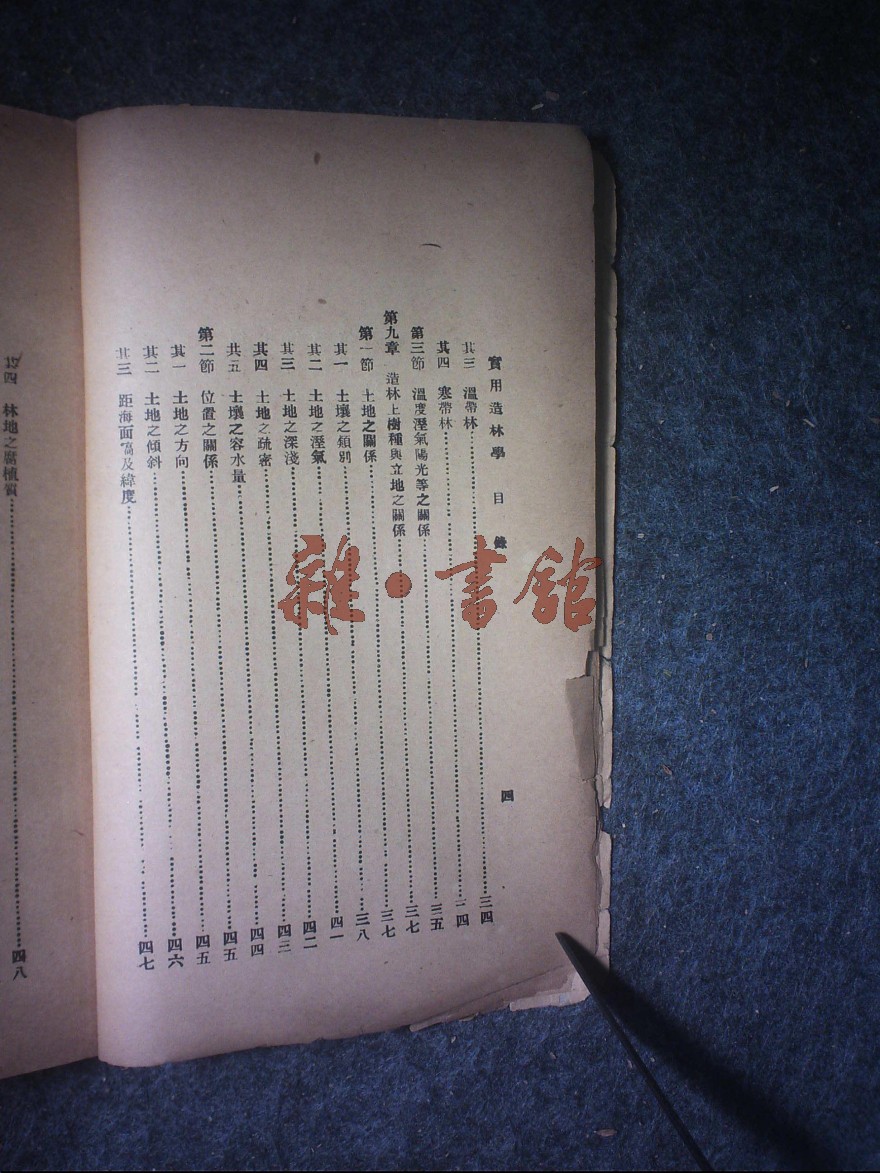 實用造林學 目錄 四
其三 溫帶林……三四
其四 寒帶林……三四
第三節 溫度溼氣陽光等之關係……三五
第九章 造林上樹種與立地之關係……三七
第一節 土地之關係……三七
其一 土壤之類別……三八
其二 土地之溼氣……四一
其三 土地之深淺……四二
其四 土地之疏密……四三
其五 土壤之容水量……四四
第二節 位置之關係……四五
其一 土地之方向……四五
其二 土地之傾斜……四六
其三 距海面高及緯度……四七
其四 林地之腐植質……四八
雜·書館